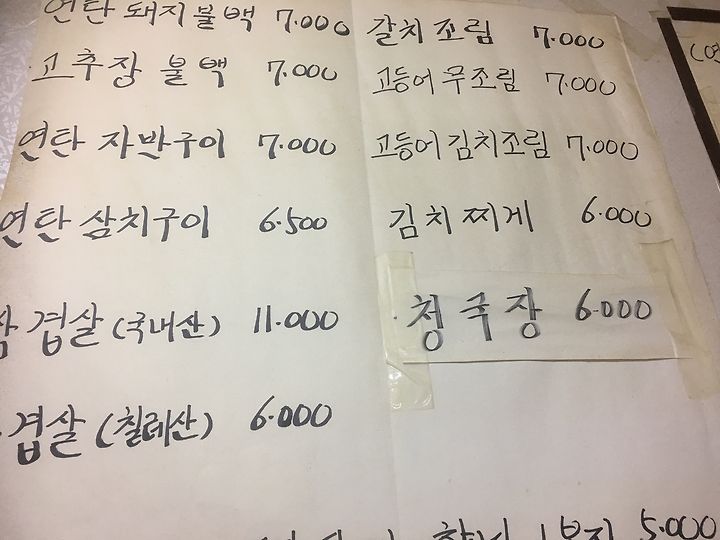 연탄 돼지불백 7.000
고추장 불백 7.000
연탄 자반구이 7.000
연탄 삼치구이 6.500
삼겹살 (국내산) 11.000
겹살 (칠레산) 6.000
갈치조림 7.000
고등어무조림 7.000
고등어김치조림 7.000
김치찌게 6.000
청국장 6.000
5.000
(연